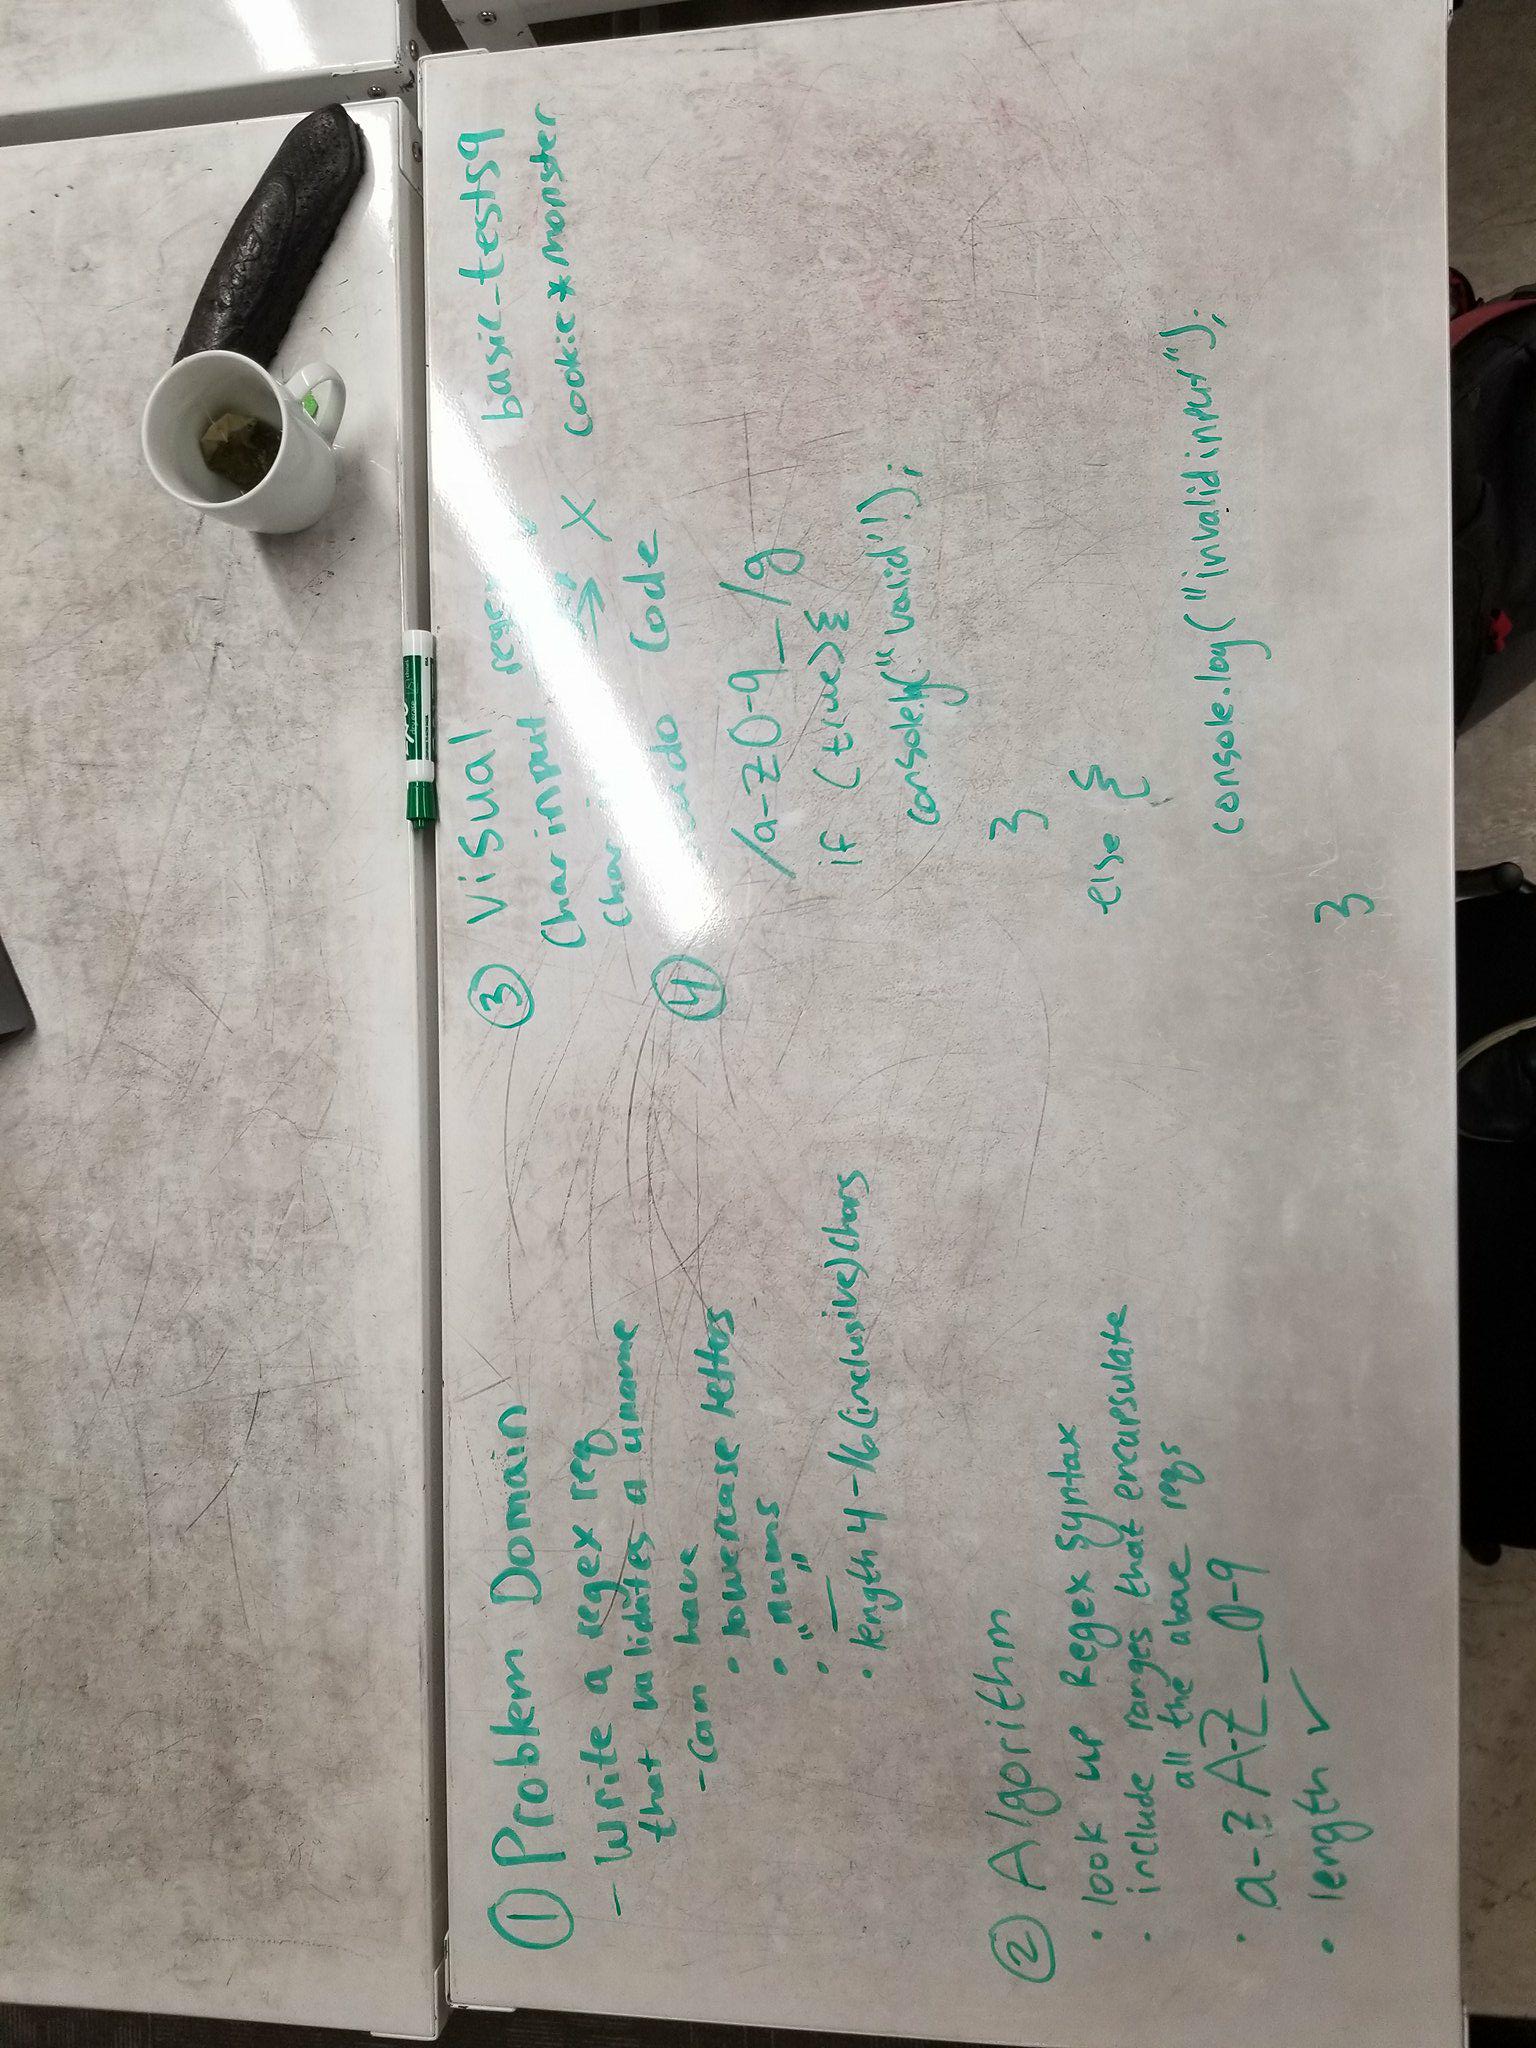 ① Problem Domain
- Write a regex req
that validates a uname
- can have
• lowercase letters
• nums
• "_"
• length 4-16 (inclusive) chars
② Algorithm
• look up Regex syntax
• include ranges that encapsulate
all the above reqs
• a-z A-Z _ 0-9
• length ✓
③ Visual
Char input basic_tests9
→ X cookie*monster
④ Code
/a-z0-9_/g
if (true) {
console.log("valid");
}
else {
console.log("invalid input");
}